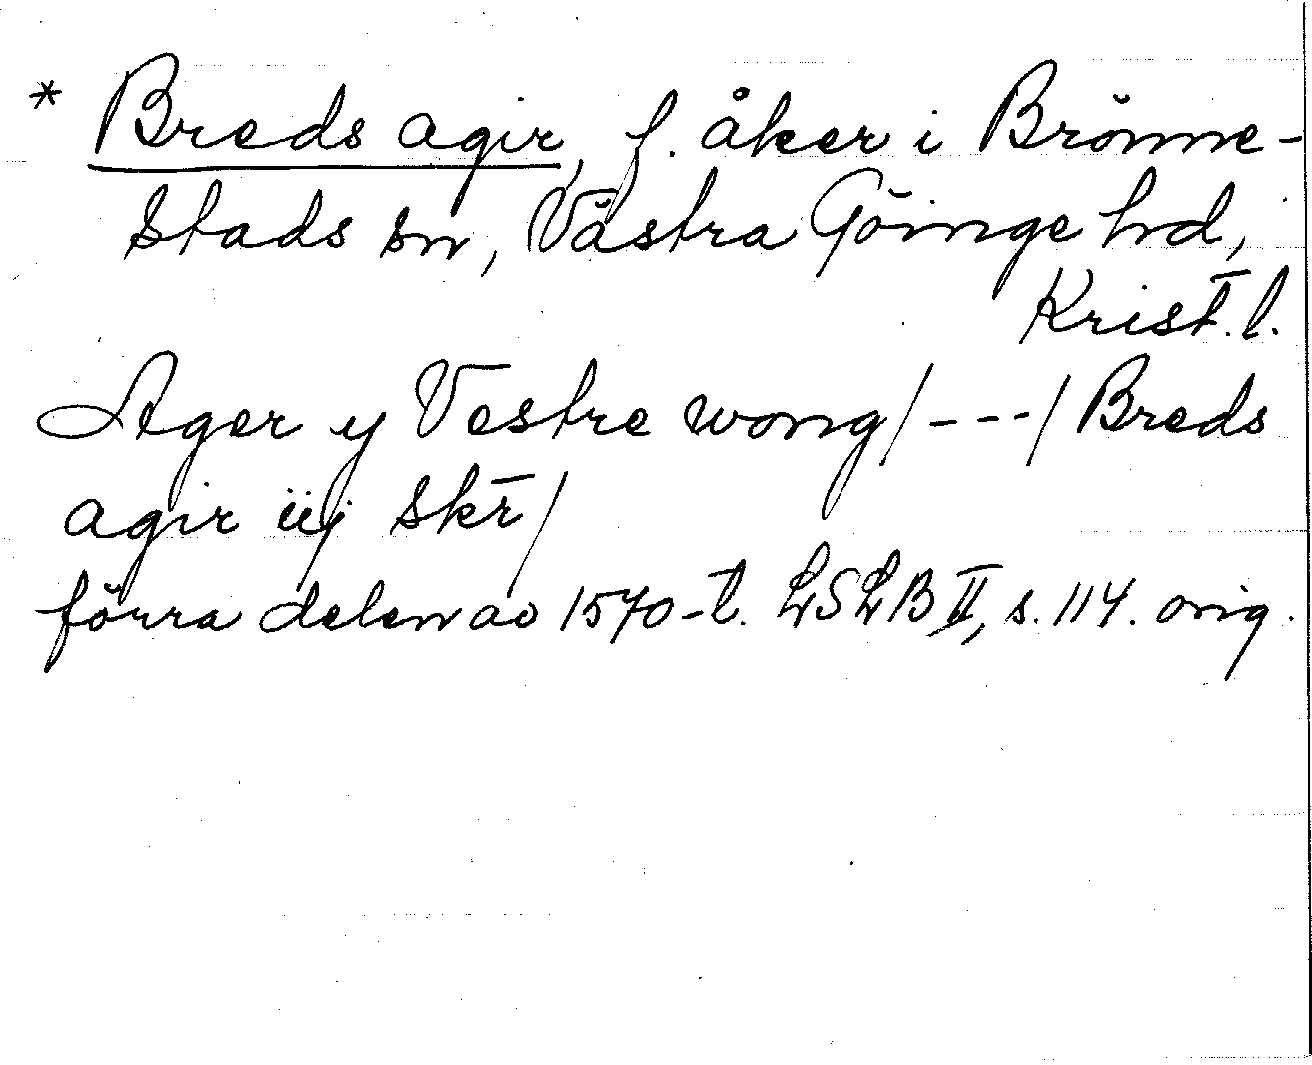 * Breds agir, f. åker i Brönne-
stads sn, Västra Göinge hd,
Krist. l.
Ager y Vestre wong/---/Breds
agir iij skr̄/
förra delen av 1570-t. LSLB II, s. 114. orig.